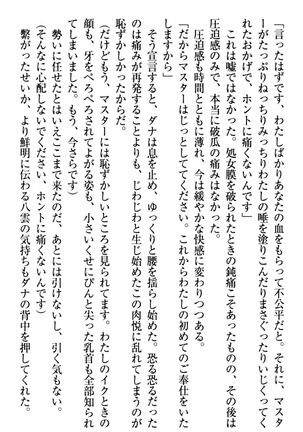 「言ったはずです、わたしばかりあなたの血をもらって不公平だと。それに、マスタ
ーがたっぷりねっちりみっちりわたしの唾を塗りこんだりまさぐったりいじくってく
れたおかげで、ホントに痛くないんです」
これは嘘ではなかった。処女膜を破られたときの鈍痛こそあったものの、その後は
圧迫感のみで、本当に破瓜の痛みはなかった。
圧迫感も時間とともに薄れ、今は緩やかな快感に変わりつつある。
「だからマスターはじっとしててください。これからわたしの初めてのご奉仕をいた
しますから」
そう宣言すると、ダナは息を止め、ゆっくりと腰を揺らし始めた。恐る恐るだった
のは痛みが再発することよりも、じわじわと生じ始めたこの肉悦に乱れてしまうのが
恥ずかしかったからだ。
(だけどもう、マスターには恥ずかしいところを見られてます。わたしのイクときの
顔も、牙をぺろぺろされてよがる姿も、小さいくせにぴんと尖った乳首も全部知られ
てしまいました。もう、今さらです)
勢いに任せたとはいえここまで来たのだ、あとには引けないし、引く気もない。
(そんなに心配しないでください、ホントに痛くないんです)
繋がったせいか、より鮮明に伝わる八雲の気持ちもダナの背中を押してくれた。